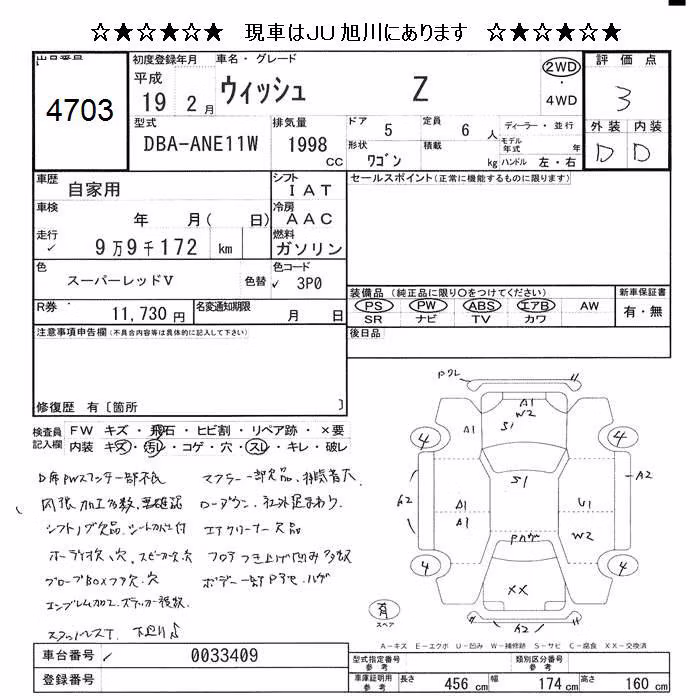 ☆★☆★☆★ 現車はJU旭川にあります ☆★☆★☆★
出品番号 初度登録年月 車名・グレード 評価点
4703
平成 19 2月 ウィッシュ Z 2WD ・ 4WD 3
型式 排気量 ドア 5 定員 6 人 ディーラー・並行 外装 内装
DBA-ANE11W 1998 cc 形状 ワゴン 積載 kg モデル年式 年 ハンドル 左・右 D D
車歴 自家用 シフト IAT セールスポイント(正常に機能するものに限ります)
車検 年 月( 日) 冷房 AAC
走行 9万9千172 km 燃料 ガソリン
色 スーパーレッドV 色替 色コード 3P0
装備品 (純正品に限り○をつけてください) 新車保証書
PS PW ABS エアB AW 有・無
SR ナビ TV カワ
R券 11,730円 名変通知期限 月 日
後日品
注意事項申告欄(不具合内容等は具体的に記入して下さい)
修復歴 有〔箇所 〕
検査員記入欄 FW キズ・飛石・ヒビ割・リペア跡・×要
内装 キズ・汚レ・コゲ・穴・スレ・キレ・破レ
マフラー一部欠品、排気音大
シフトノブ欠品、シートカバー付
エアクリーナー欠品
オーディオ欠、穴、スピーカー欠、穴
グローブBOXフタ欠、穴
エンブレム加工、ステッカー複数
A1
W2
S1
A1
4
4
S1
A2
A2
A1
A1
U1
W2
4
4
XX
A2
有
スペア
A-キズ E-エクボ U-凹み W-補修跡 S-サビ C-腐食 XX-交換済
車台番号 0033409
登録番号
型式指定番号 参考 類別区分番号 参考
車庫証明用 参考 長さ 456 cm 幅 174 cm 高さ 160 cm